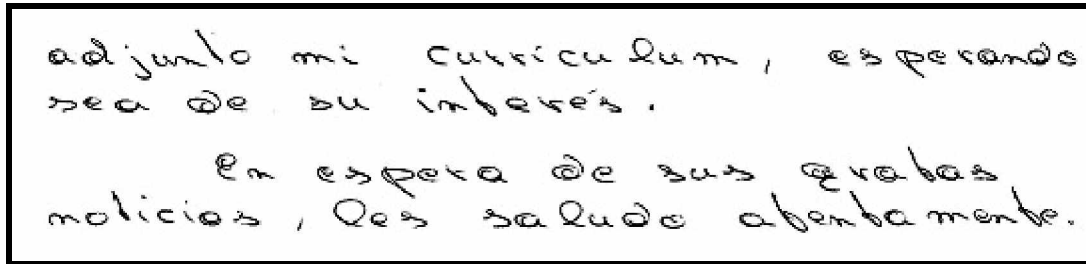 adjunto mi currículum, esperando
sea de su interés.
En espera de sus gratas
noticias, les saludo atentamente.